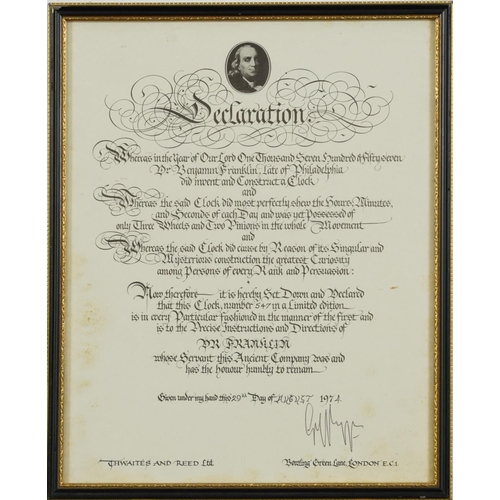 Declaration.
Whereas in the Year of Our Lord One Thousand Seven Hundred & fifty seven
Dr Benjamin Franklin, late of Philadelphia
did invent and Construct a Clock
and
Whereas the said Clock did most perfectly shew the Hours, Minutes,
and Seconds of each Day and was yet Possessed of
only Three Wheels and Two Pinions in the whole Movement
and
Whereas the said Clock did cause by Reason of its Singular and
Mysterious construction the greatest Curiosity
among Persons of every Rank and Persuasion:
Now therefore it is hereby Set Down and Declared
that this Clock, number 547 in a Limited Edition
is in every Particular fashioned in the manner of the first and
is to the Precise Instructions and Directions of
DR FRANKLIN
whose Servant this Ancient Company was and
has the honour humbly to remain
Given under my hand this 29th Day of AUGUST 1974
THWAITES AND REED Ltd.
Bowling Green Lane, LONDON E.C.1.